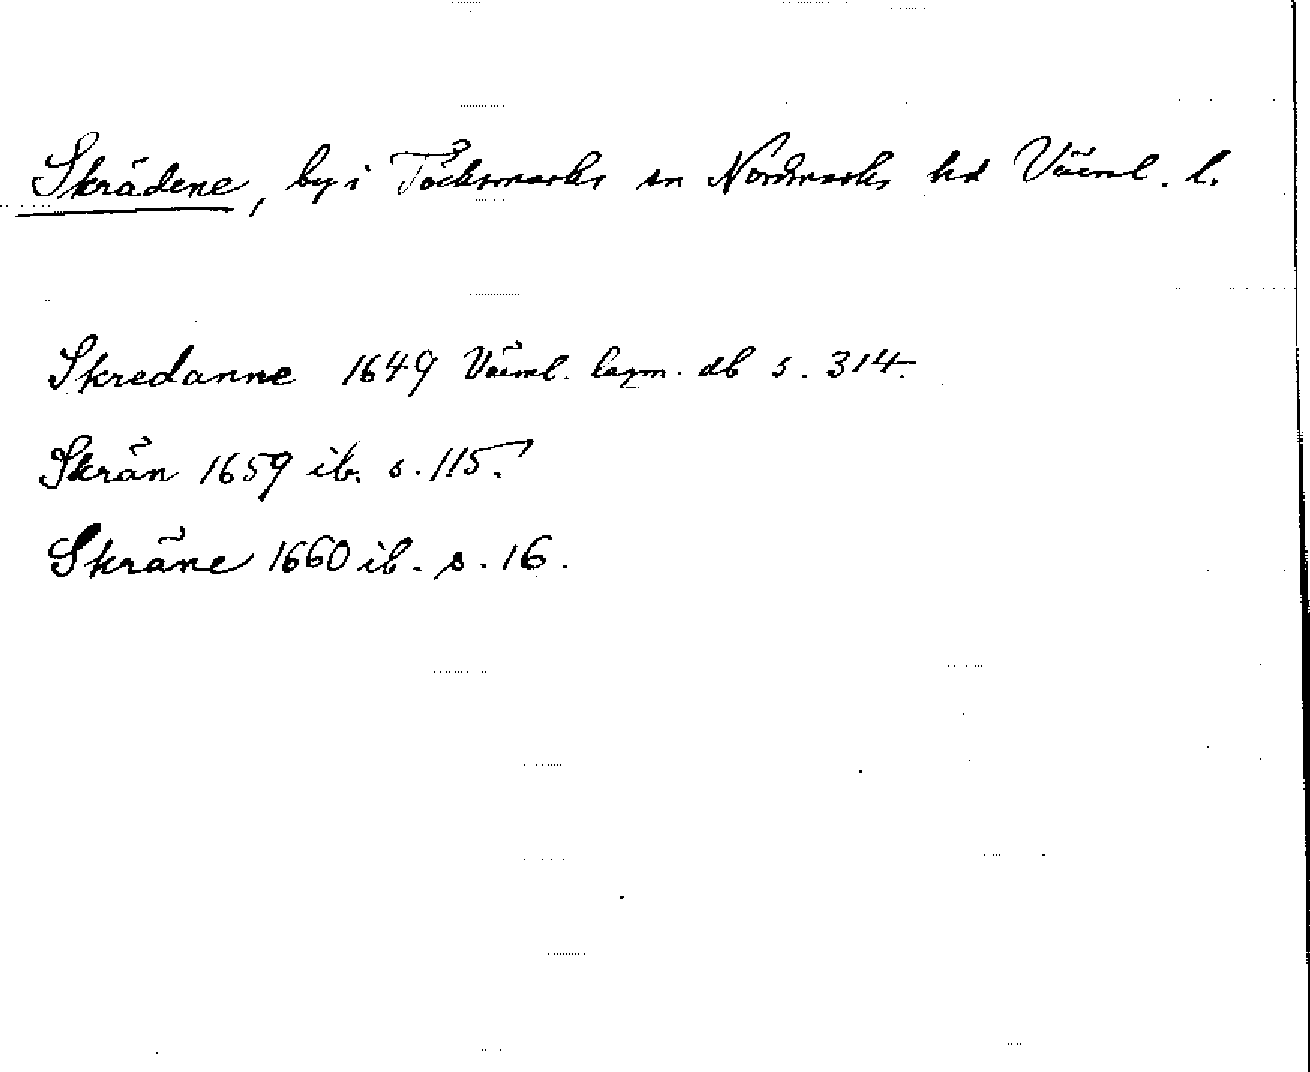 Skrädene, by i Töcksmarks sn Nordmarks hd Värml. l.
Skredanne 1649 Värml. lagm. db s. 314.
Skrän 1659 ib. s. 115.
Skräne 1660 ib. s. 16.